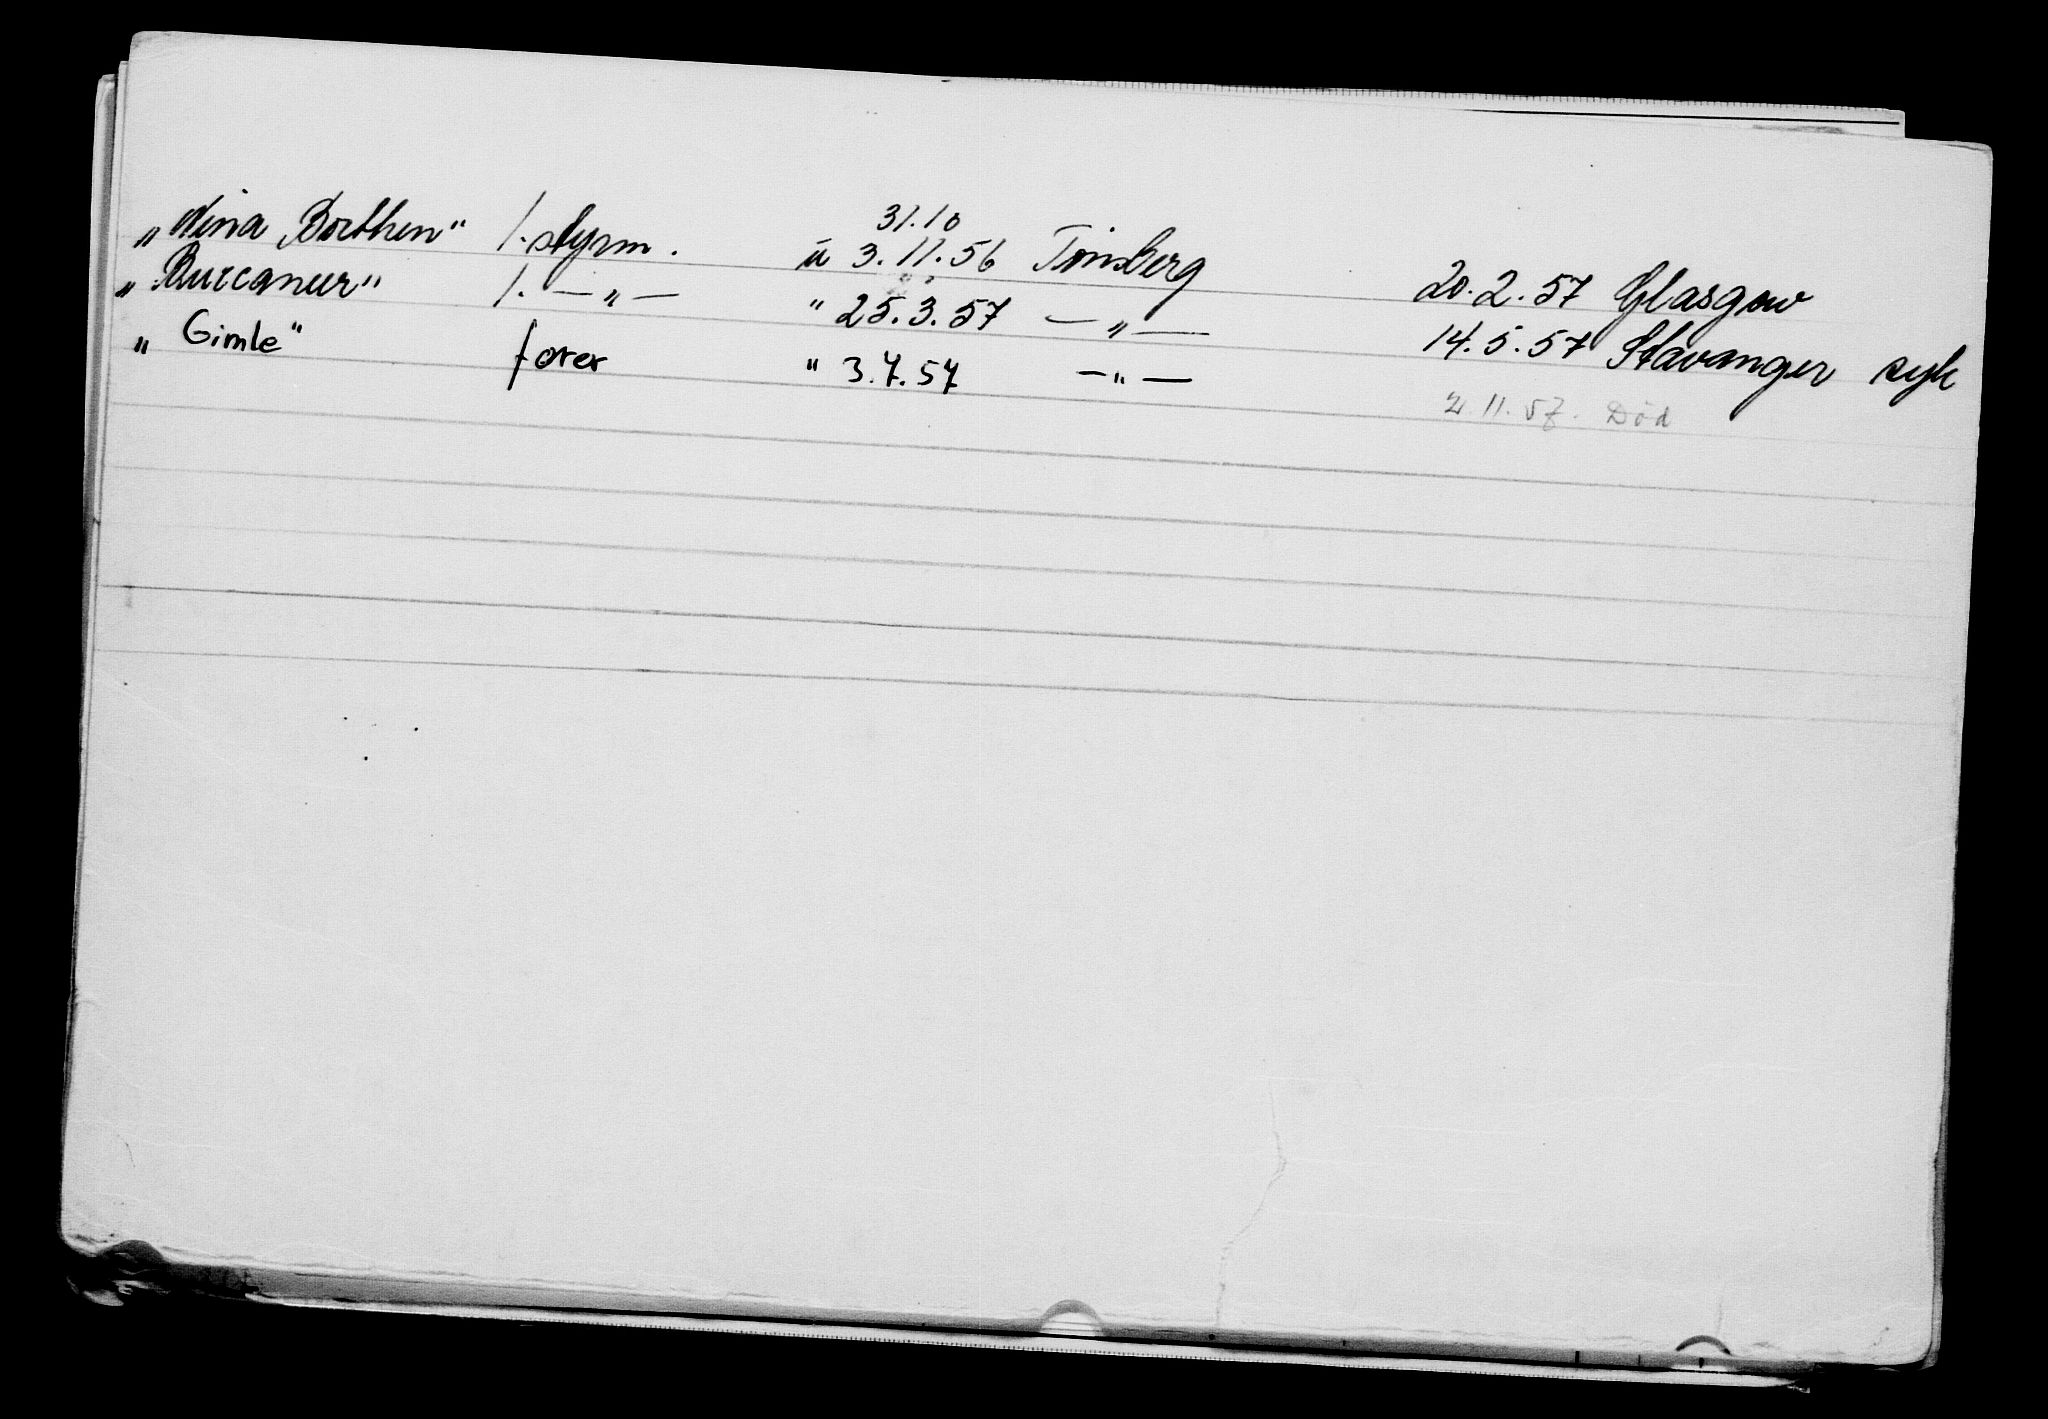 31.10
„Nina Borthen“ 1. styrm. u 3.11.56 Tønsberg 20.2.57 Glasgow
„Buccaneer“ 1. — „ — " 25.3.57 — „ — 14.5.57 Stavanger syk
„Gimle“ fører " 3.7.57 — „ — 2.11.57. Død